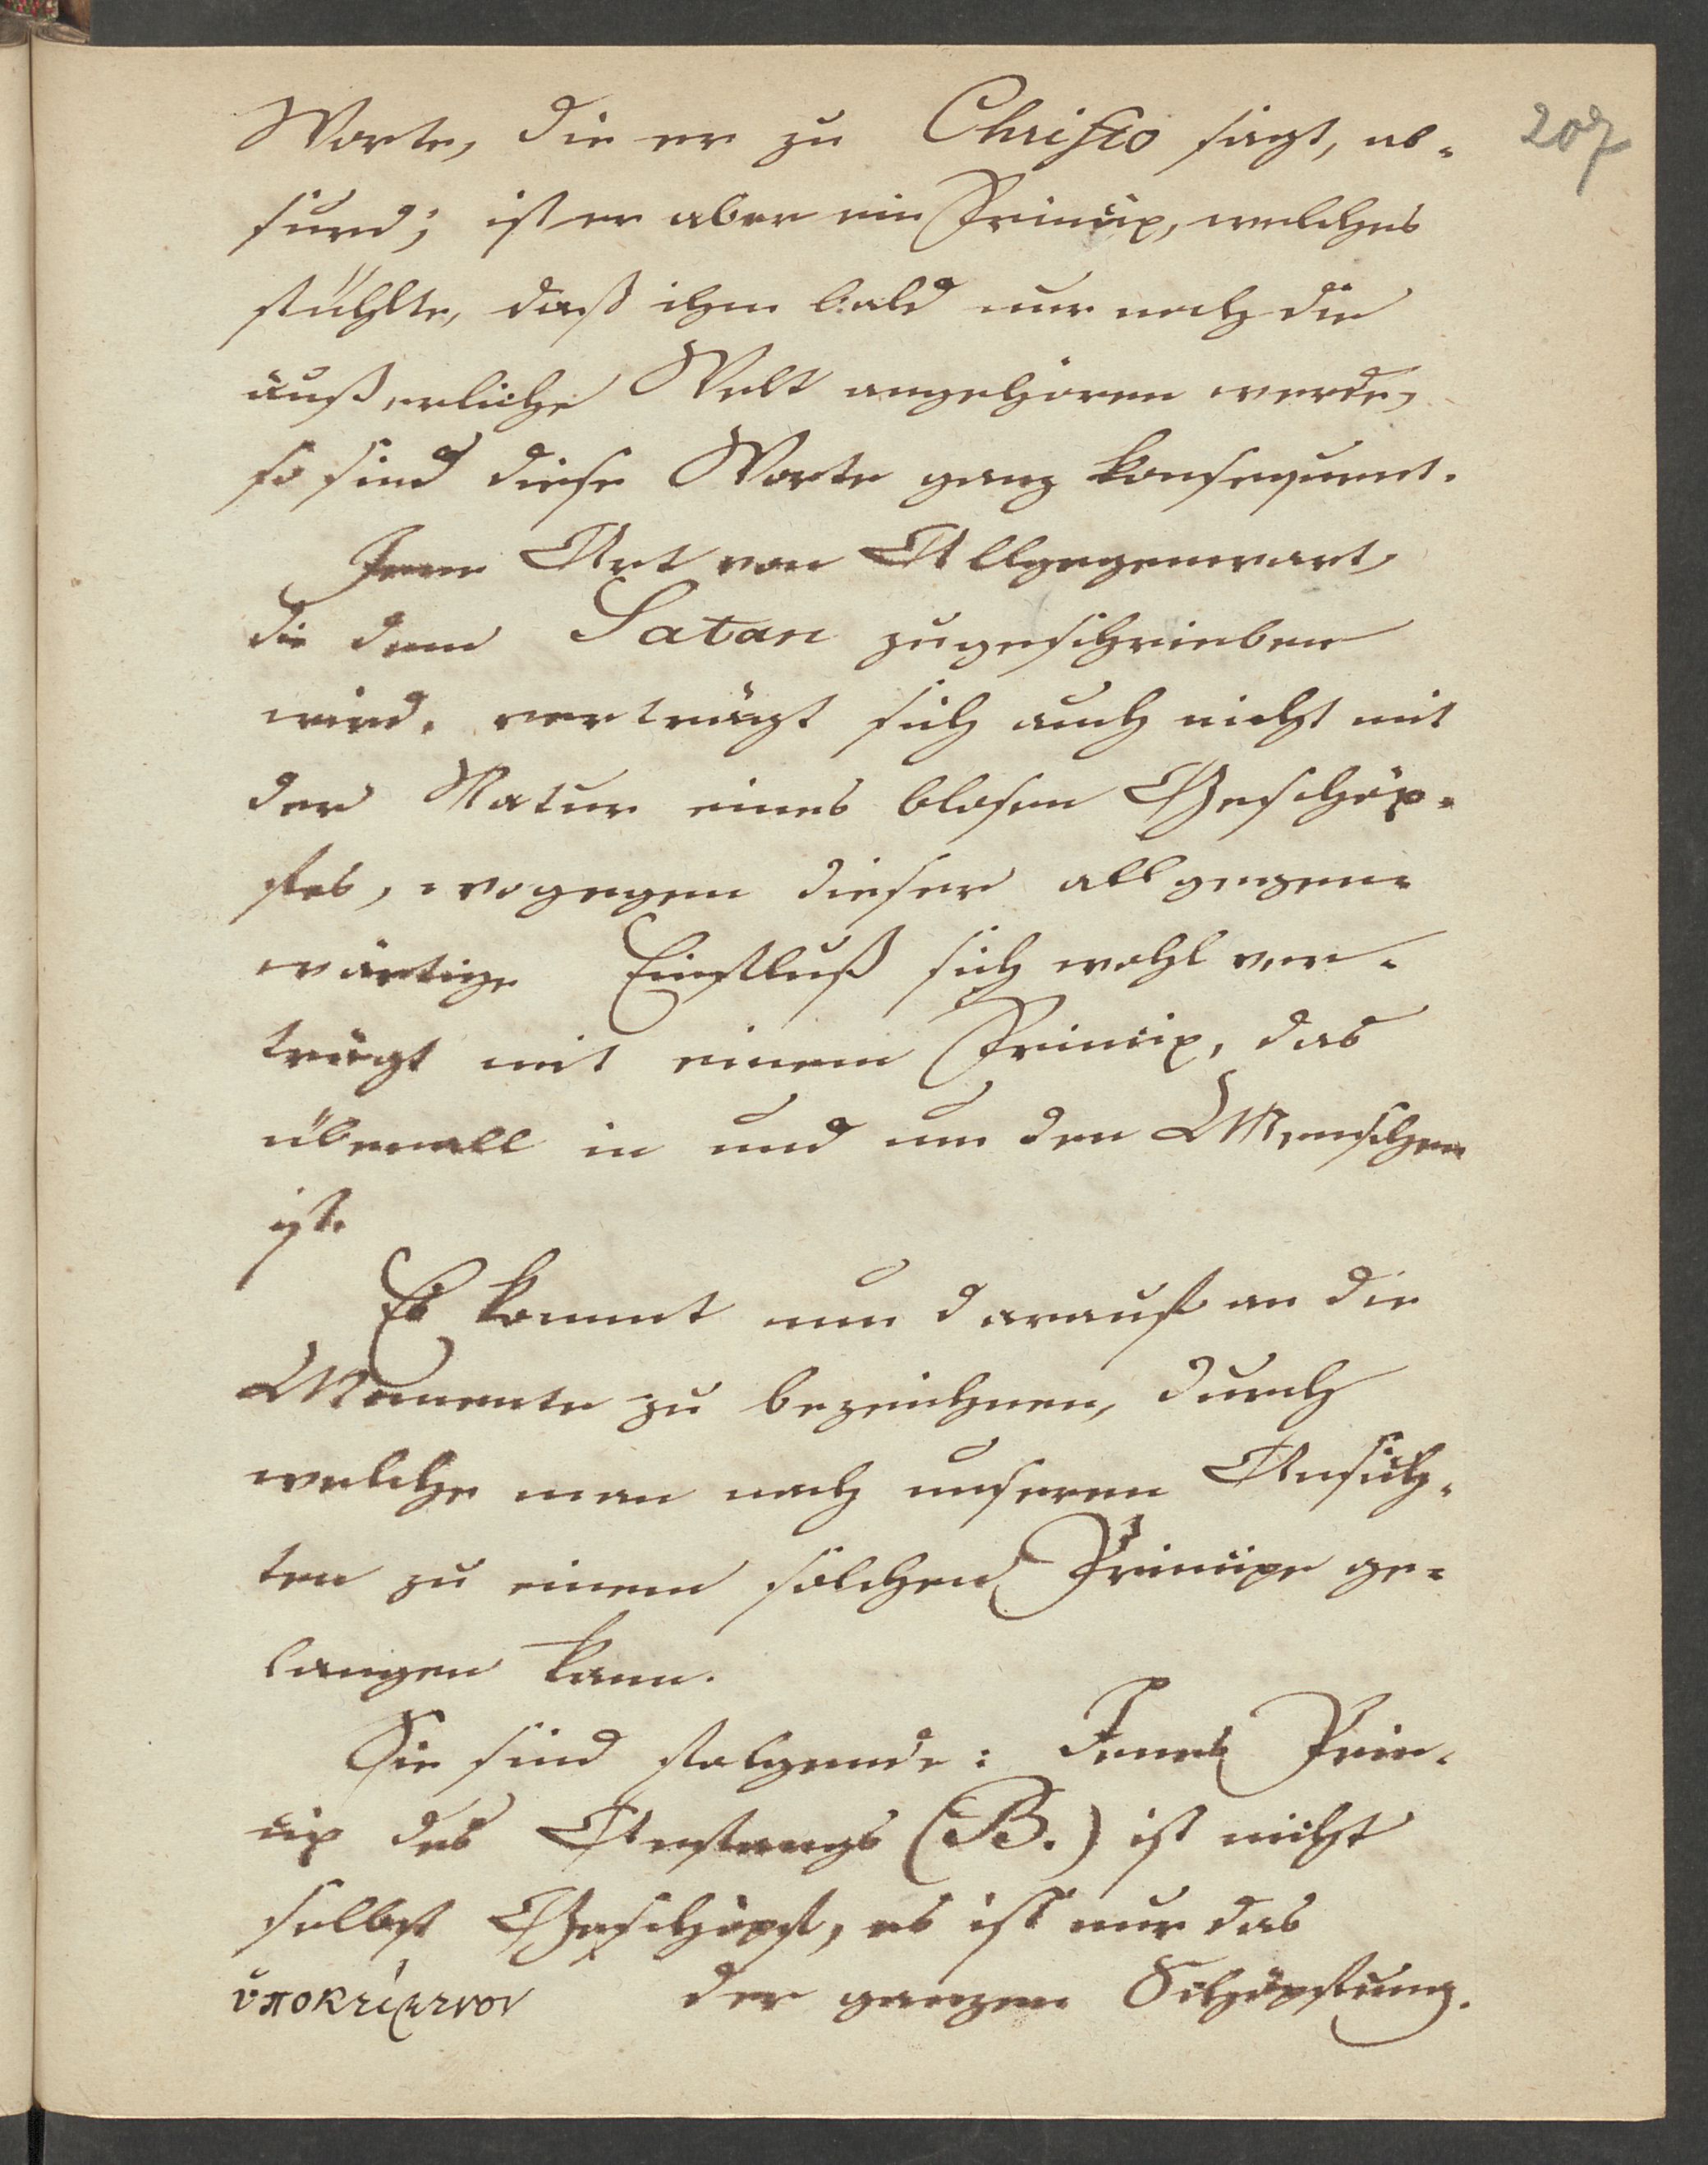 207
Worte, die er zu Christo sagt, ab-
surd; ist er aber ein Princip, welches
fühlte, daß ihm bald nur noch die
äußerliche Welt angehören werde,
so sind diese Worte ganz konsequent.
Jene Art von Allgegenwart,
die dem Satan zugeschrieben
wird, verträgt sich auch nicht mit
der Natur eines blosen Geschöp-
fes, wogegen dieser allgegen-
wärtige Einfluß sich wohl ver-
trägt mit einem Princip, das
überall in und um den Menschen
ist.
Es kommt nun darauf an die
Momente zu bezeichnen, durch
welche man nach unseren Ansich-
ten zu einem solchen Principe ge-
langen kann.
Sie sind folgende: Jenes Prin-
cip des Anfangs (B.) ist nicht
selbst Geschöpf, es ist nur das
ὑποκείμενον der ganzen Schöpfung.